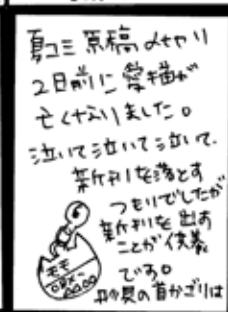 夏コミ原稿〆切り
2日前に愛猫が
亡くなりました。
泣いて泣いて泣いて、
新刊を落とす
つもりでしたが
新刊を出す
ことが供養
です。
の首かざりは
モモ